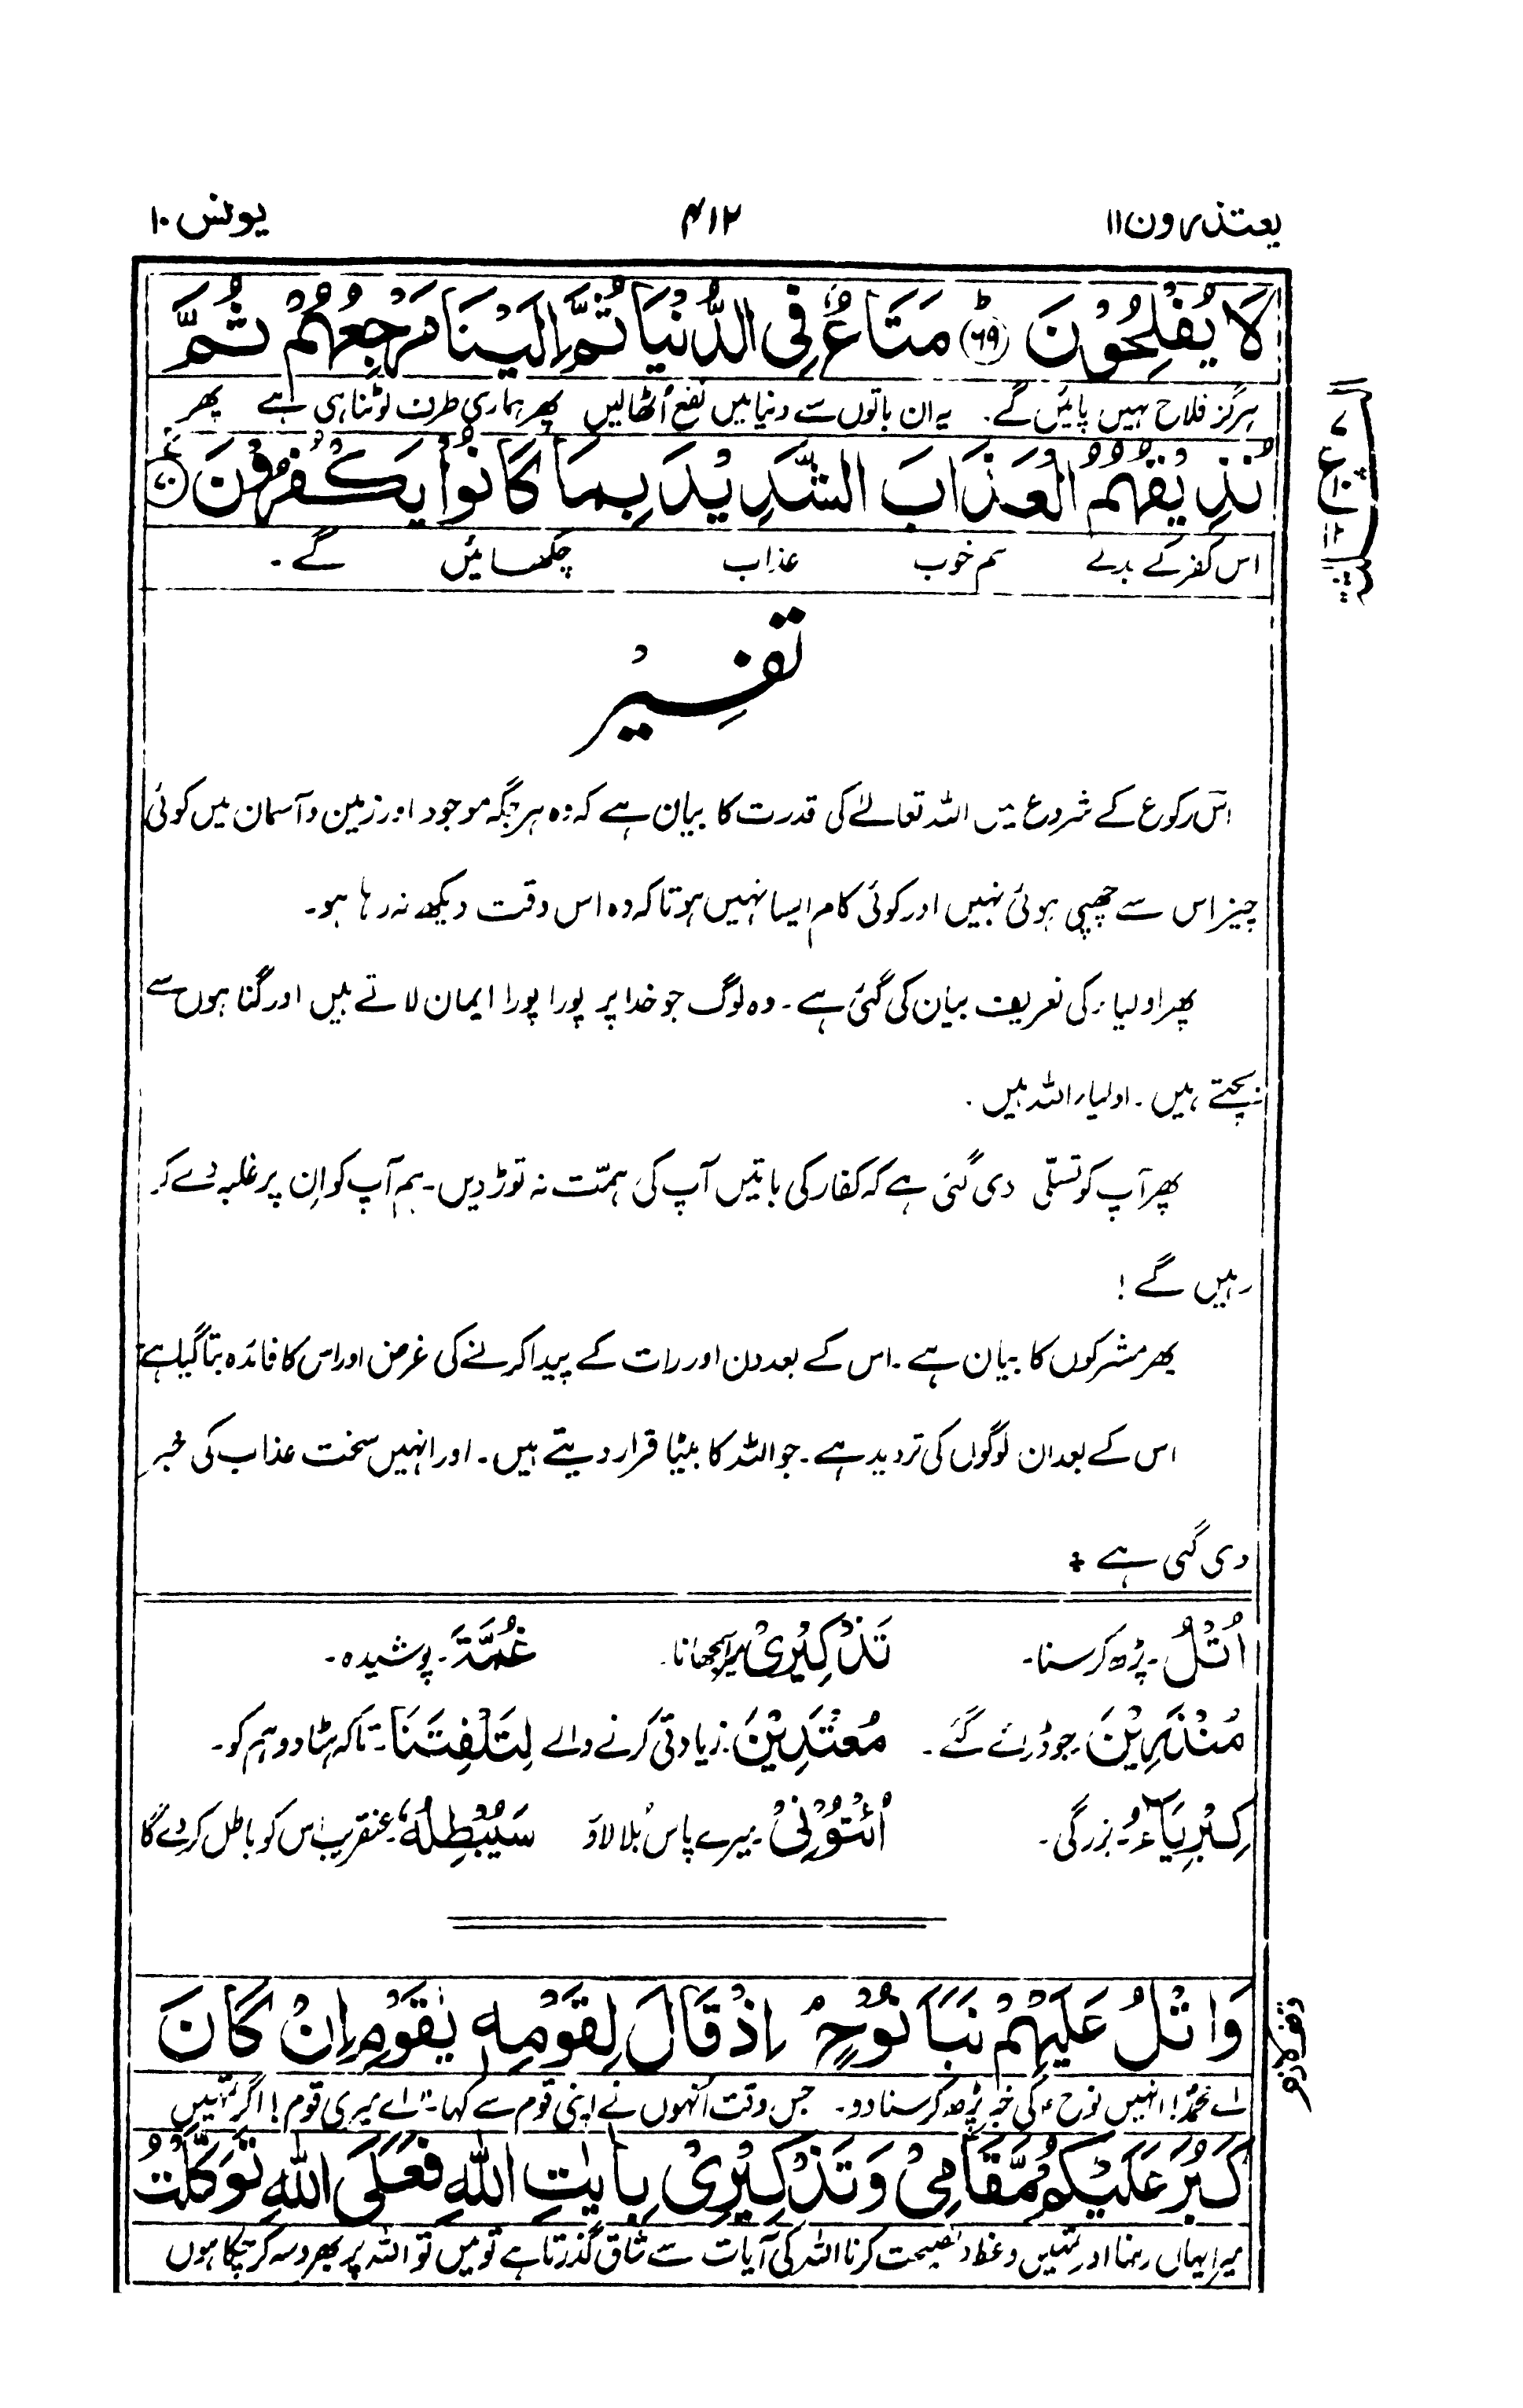 یعتذرون ۱۱
۴۱۲
یونس ۱۰
لَا يُفْلِحُوْنَ ﴿۶۹﴾ مَتَاعٌ فِی الدُّنْيَا ثُمَّ اِلَيْنَا مَرْجِعُهُمْ ثُمَّ
ہرگز فلاح نہیں پائیں گے۔ یہ ان باتوں سے دنیا میں نفع اُٹھالیں پھر ہماری طرف لوٹنا ہی ہے پھر
نُذِيْقُهُمُ الْعَذَابَ الشَّدِيْدَ بِمَا كَانُوْا يَكْفُرُوْنَ ﴿۷۰﴾
اس کفر کے بدلے ہم خوب عذاب چکھائیں گے۔
ع
۷
۱۲
تفسیر
اس رکوع کے شروع میں اللہ تعالےٰ کی قدرت کا بیان ہے کہ وہ ہر جگہ موجود اور زمین و آسمان میں کوئی
چیز اس سے چھپی ہوئی نہیں اور کوئی کام ایسا نہیں ہوتا کہ وہ اس وقت دیکھ نہ رہا ہو۔
پھر اولیاء کی تعریف بیان کی گئی ہے۔ وہ لوگ جو خدا پر پورا پورا ایمان لاتے ہیں اور گناہوں سے
بچتے ہیں۔ اولیاء اللہ ہیں۔
پھر آپ کو تسلّی دی گئی ہے کہ کفار کی باتیں آپ کی ہمّت نہ توڑ دیں۔ ہم آپ کو اِن پر غلبہ دے کر
رہیں گے!
پھر مشرکوں کا بیان ہے۔ اس کے بعد دن اور رات کے پیدا کرنے کی غرض اور اس کا فائدہ بتا گیا ہے
اس کے بعد ان لوگوں کی تردید ہے۔ جو اللہ کا بیٹا قرار دیتے ہیں۔ اور انہیں سخت عذاب کی خبر
دی گئی ہے ÷
اُتْلُ۔ پڑھ کر سنا۔ تَذْكِيْرِیْ میرا سمجھانا۔ غُمَّةً۔ پوشیدہ۔
مُنْذَرِيْنَ۔ جو ڈرائے گئے۔ مُعْتَدِيْنَ۔ زیادتی کرنے والے لِتَلْفِتَنَا۔ تاکہ ہٹا دو ہم کو۔
كِبْرِيَآءُ۔ بزرگی۔ ائْتُوْنِیْ۔ میرے پاس بُلا لاؤ سَيُبْطِلُهٗ۔ عنقریب اس کو باطل کر دے گا
وَاتْلُ عَلَيْهِمْ نَبَاَ نُوْحٍ ۘ اِذْ قَالَ لِقَوْمِهٖ يٰقَوْمِ اِنْ كَانَ
اے محمدؐ! انہیں نوحؑ کی خبر پڑھ کر سنا دو۔ جس وقت اُنہوں نے اپنی قوم سے کہا۔ "اے میری قوم! اگر تمہیں
كَبُرَ عَلَيْكُمْ مَّقَامِیْ وَتَذْكِيْرِیْ بِاٰيٰتِ اللّٰهِ فَعَلَی اللّٰهِ تَوَكَّلْتُ
میرا یہاں رہنا اور تمہیں وعظ و نصیحت کرنا اللہ کی آیات سے شاق گذرتا ہے تو میں تو اللہ پر بھروسہ کر چکا ہوں